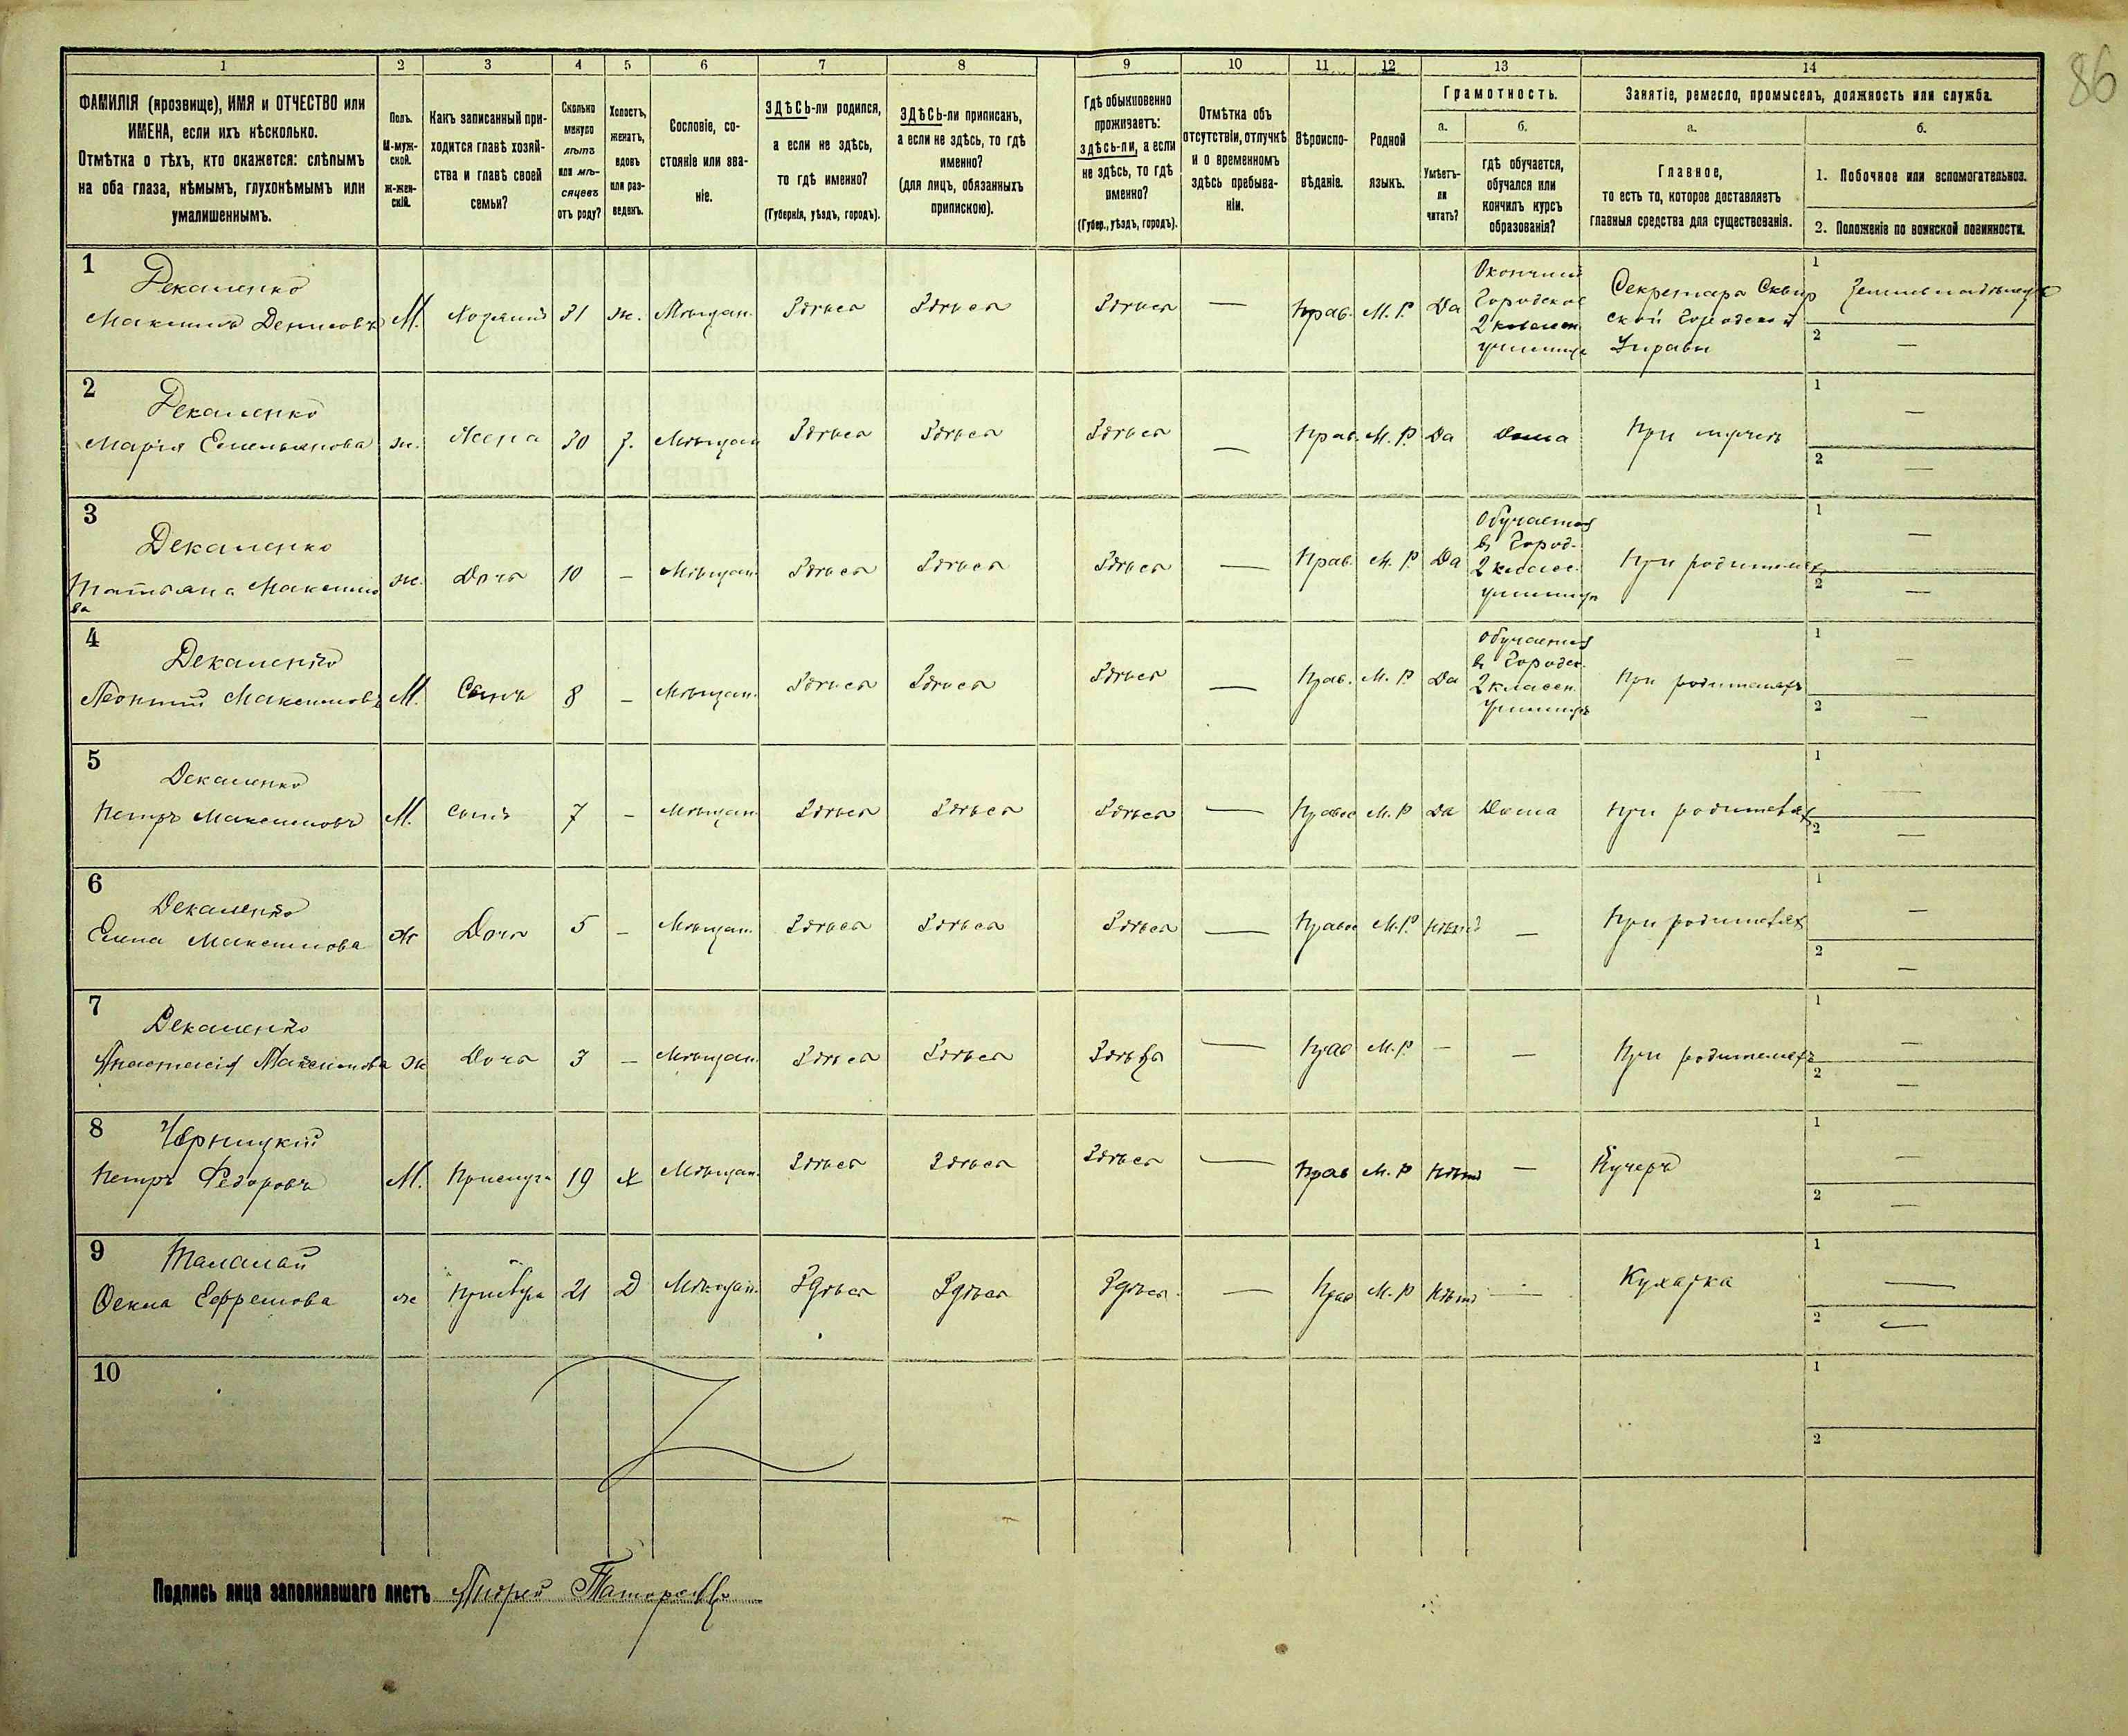 86
1 2 3 4 5 6 7 8 9 10 11 12 13 14
ФАМИЛІЯ (прозвище), ИМЯ и ОТЧЕСТВО или
ИМЕНА, если ихъ нѣсколько.
Отмѣтка о тѣхъ, кто окажется: слѣпымъ
на оба глаза, нѣмымъ, глухонѣмымъ или
умалишеннымъ.
Полъ.
М-муж-
ской.
ж-жен-
скій.
Какъ записанный при-
ходится главѣ хозяй-
ства и главѣ своей
семьи?
Сколько
минуло
лѣтъ
или мѣ-
сяцевъ
отъ роду?
Холостъ,
женатъ,
вдовъ
или раз-
веденъ.
Сословіе, со-
стояніе или зва-
ніе.
ЗДѢСЬ-ли родился,
а если не здѣсь,
то гдѣ именно?
(Губернія, уѣздъ, городъ).
ЗДѢСЬ-ли приписанъ,
а если не здѣсь, то гдѣ
именно?
(для лицъ, обязанныхъ
припискою).
Гдѣ обыкновенно
проживаетъ:
здѣсь-ли, а если
не здѣсь, то гдѣ
именно?
(Губер., уѣздъ, городъ).
Отмѣтка объ
отсутствіи, отлучкѣ
и о временномъ
здѣсь пребыва-
ніи.
Вѣроиспо-
вѣданіе.
Родной
языкъ.
Грамотность.
а.
Умѣетъ-
ли
читать?
б.
гдѣ обучается,
обучался или
кончилъ курсъ
образованія?
Занятіе, ремесло, промыселъ, должность или служба.
а.
Главное,
то есть то, которое доставляетъ
главныя средства для существованія.
б.
1. Побочное или вспомогательное.
2. Положеніе по воинской повинности.
1
Декаленко
Максимъ Денисовъ М. Хозяинъ 31 ж. Мѣщан. Здѣсь Здѣсь Здѣсь — Прав. М. Р. Да
Окончилъ
Городское
2 классн.
училище
Секретарь Сквир
ской Городской
Управы
1
2 —
2
Декаленко
Марія Емельянова ж. Жена 30 З. Мѣщан Здѣсь Здѣсь Здѣсь — Прав. М. Р. Да Дома При мужѣ
1 —
2 —
3
Декаленко
Татьяна Максимо
ва
ж. Дочь 10 — Мѣщан. Здѣсь Здѣсь Здѣсь — Прав. М. Р Да
Обучается
въ Город.
2 класс.
училищѣ
При родителяхъ
1 —
2 —
4
Декаленко
Леонтій Максимовъ М. Сынъ 8 — Мѣщан. Здѣсь Здѣсь Здѣсь — Прав. М. Р. Да
Обучается
въ Городск.
2 классн.
училищѣ
При родителяхъ
1 —
2 —
5
Декаленко
Петръ Максимовъ М. сынъ 7 — Мѣщан. Здѣсь Здѣсь Здѣсь — Правос М. Р Да Дома При родителях
1 —
2 —
6
Декаленко
Елена Максимова ж Дочь 5 — Мѣщан. Здѣсь Здѣсь Здѣсь — Правос М. Р. Нѣтъ — При родителях
1 —
2 —
7
Декаленко
Анастасія Максимова ж Дочь 3 — Мѣщан. Здѣсь Здѣсь Здѣсь — Прав М. Р. — — При родителяхъ
1 —
2 —
8 Черницкій
Петръ Федоровъ М. Прислуга 19 х Мѣщан. Здѣсь Здѣсь Здѣсь — Прав М. Р Нѣтъ — Кучеръ
1 —
2 —
9 Таланай
Фекла Ефремова ж 21 Д Мѣщан. Здѣсь Здѣсь Здѣсь. — Прав М. Р Нѣтъ — Кухарка
1 —
2 —
10
1
2
Подпись лица заполнявшаго листъ Андрей